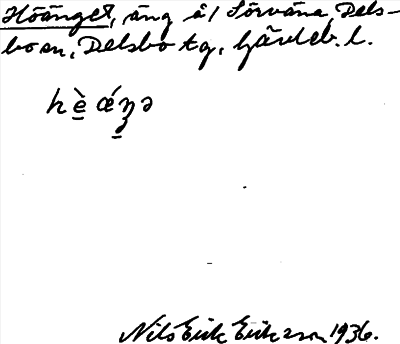 Höänget, äng å/ Sörväna, Dels-
boen, Delsbo tg, Gävleb. l.
hè̱ ǽŋ̱ə
Nils Erik Eriksson 1936.